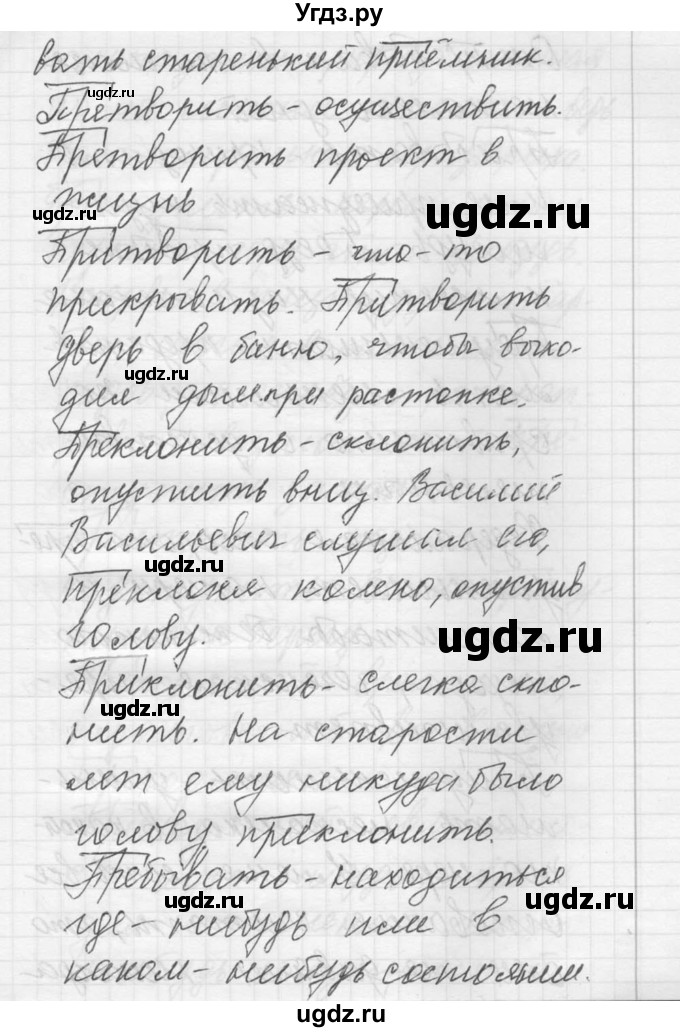 Угдз.ру
вать старенький приёмник.
Претворить - осуществить.
Претворить проект в
жизнь
Притворить - что-то
прикрывать. Притворить
дверь в баню, чтобы выхо-
дил дым при растопке.
Преклонить - склонить,
опустить вниз. Василий
Васильевич слушал его,
преклоня колено, опустив
голову.
Приклонить - слегка скло-
нить. На старости
лет ему никуда было
голову приклонить.
Пребывать - находиться
где-нибудь или в
каком-нибудь состоянии.
ugdz.ru
ugdz.ru
ugdz.ru
ugdz.ru
ugdz.ru
ugdz.ru
ugdz.ru
ugdz.ru
ugdz.ru